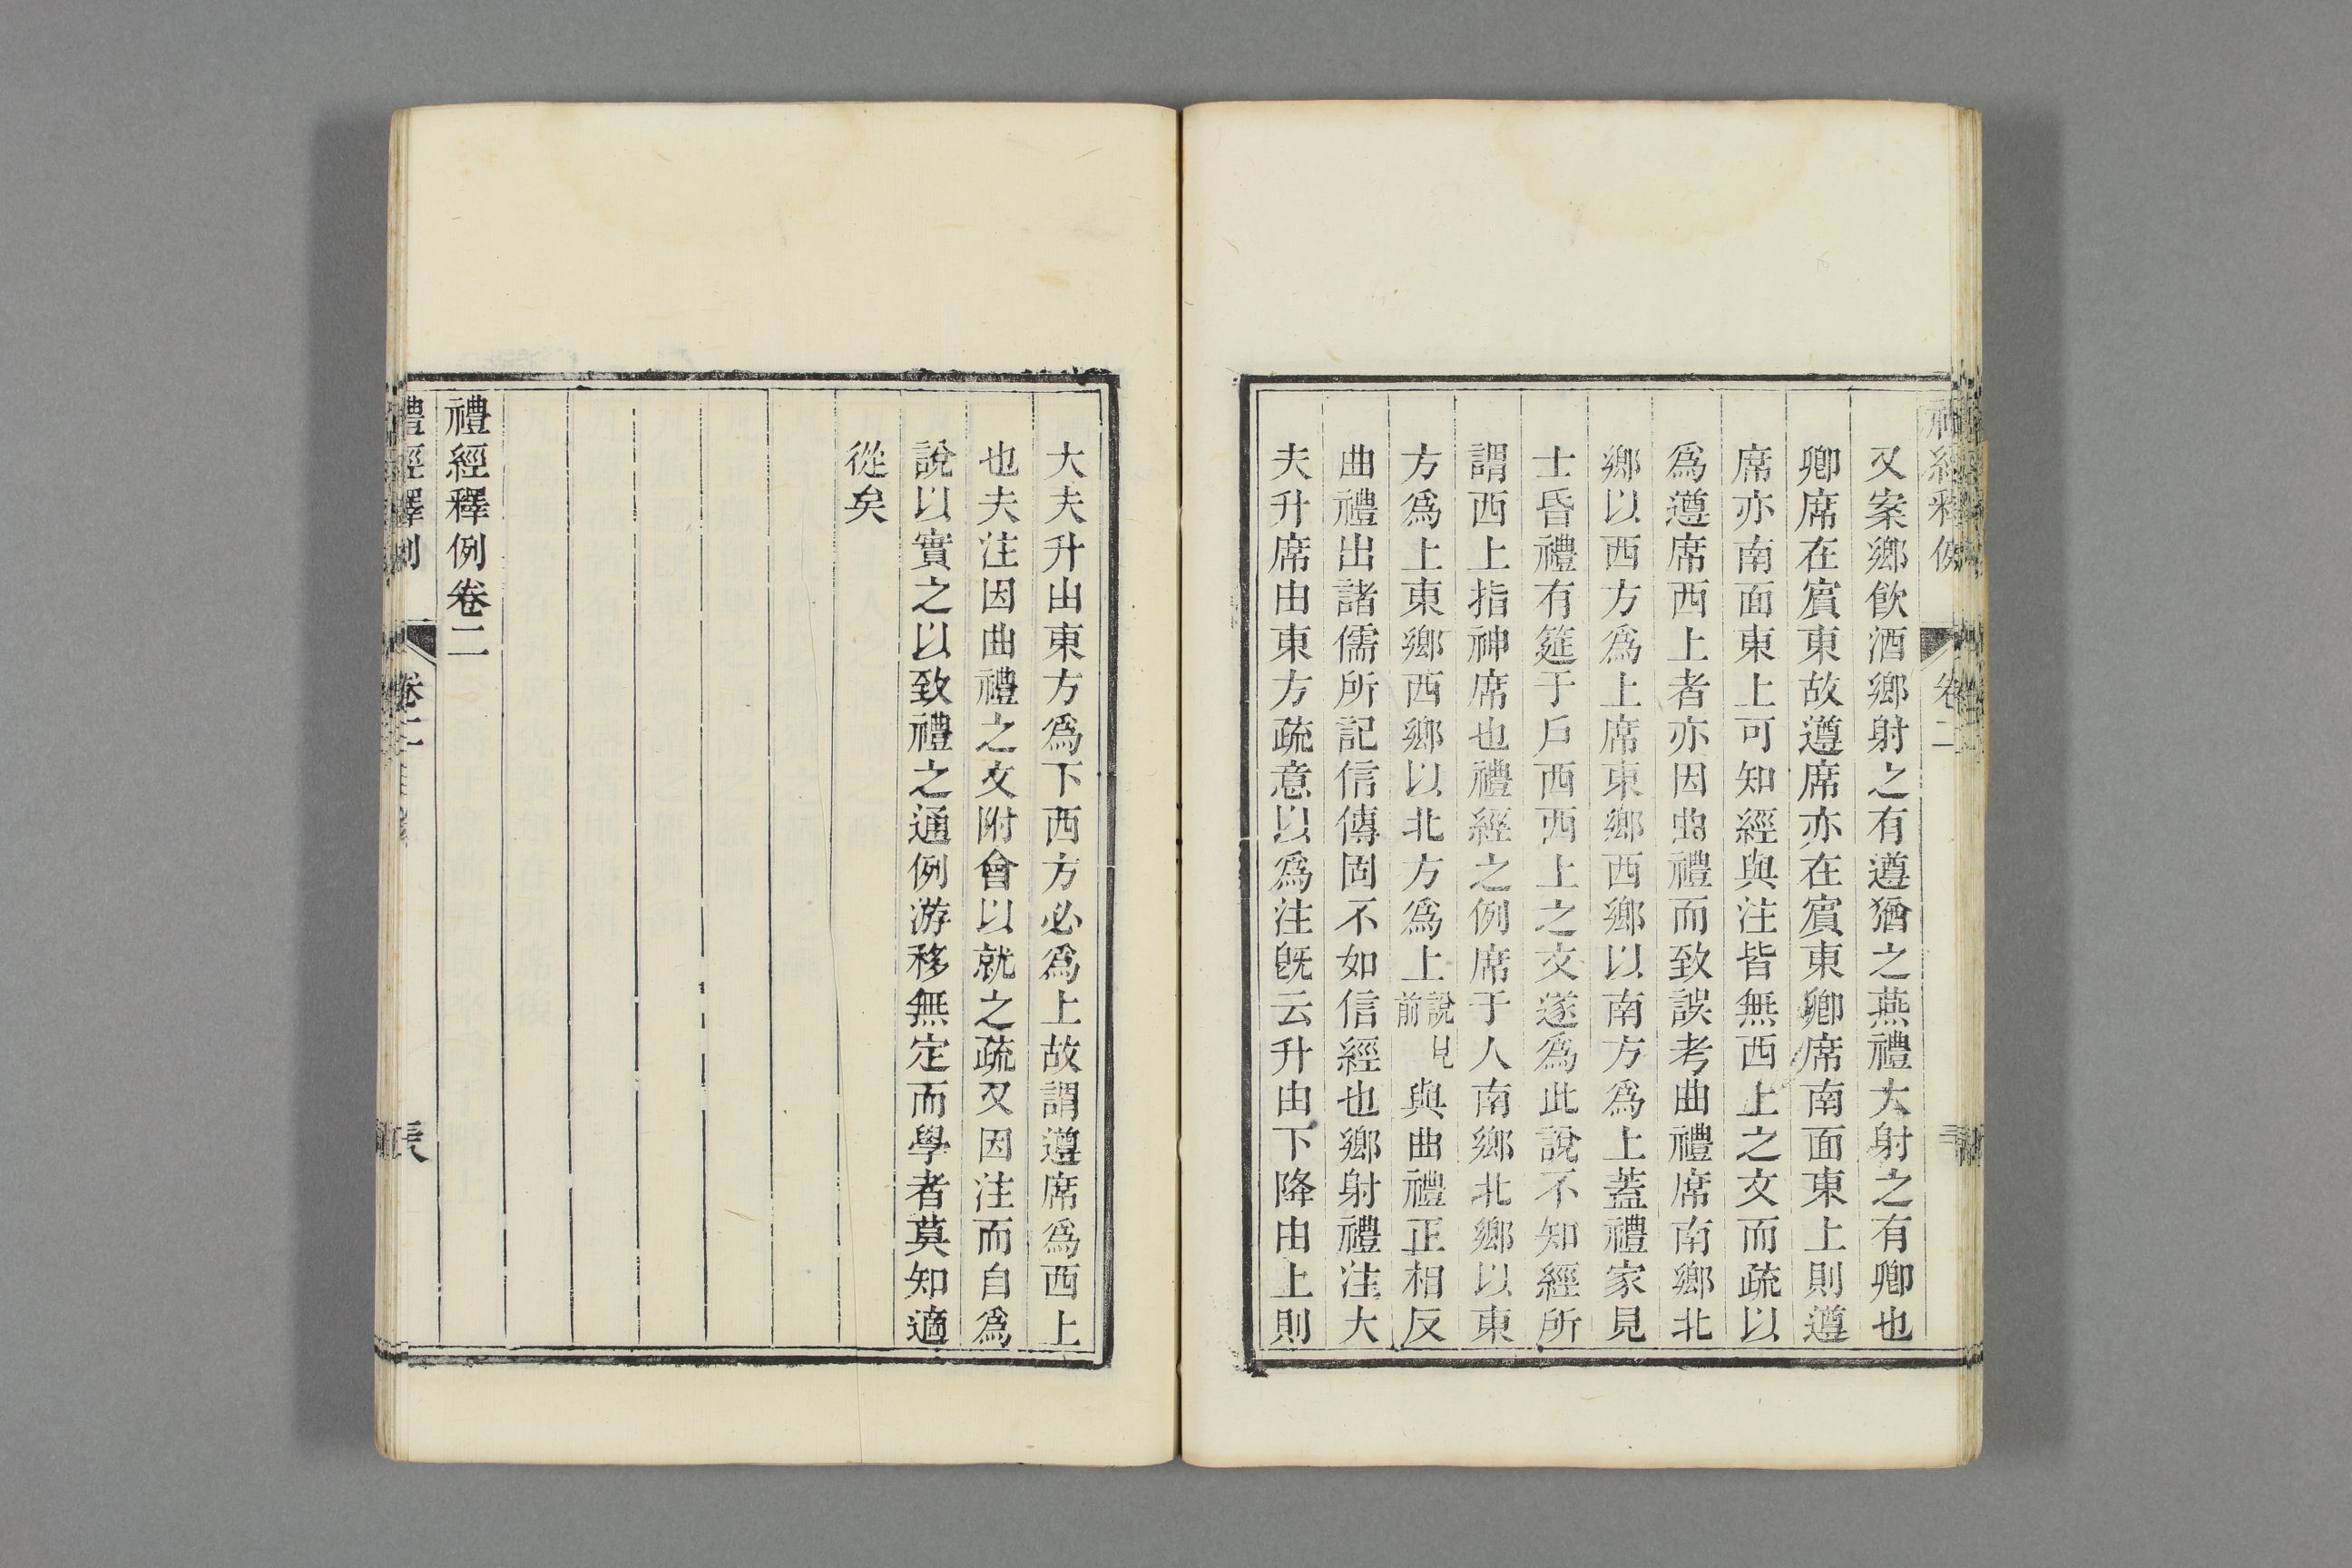 禮經釋例
卷二
又案鄉飲酒鄉射之有遵猶之燕禮大射之有卿也
卿席在賔東故遵席亦在賔東卿席南面東上則遵
席亦南面東上可知經與注皆無西上之文而疏以
爲遵席西上者亦因曲禮而致誤考曲禮席南鄉北
鄉以西方爲上席東鄉西鄉以南方爲上蓋禮家見
士昏禮有筵于戶西西上之文遂爲此說不知經所
謂西上指神席也禮經之例席于人南鄉北鄉以東
方爲上東鄉西鄉以北方爲上說見前與曲禮正相反
曲禮出諸儒所記信傳固不如信經也鄉射禮注大
夫升席由東方疏意以爲注旣云升由下降由上則
大夫升由東方爲下西方必爲上故謂遵席爲西上
也夫注因曲禮之文附會以就之疏又因注而自爲
說以實之以致禮之通例游移無定而學者莫知適
從矣
禮經釋例卷二
禮經釋例
卷二